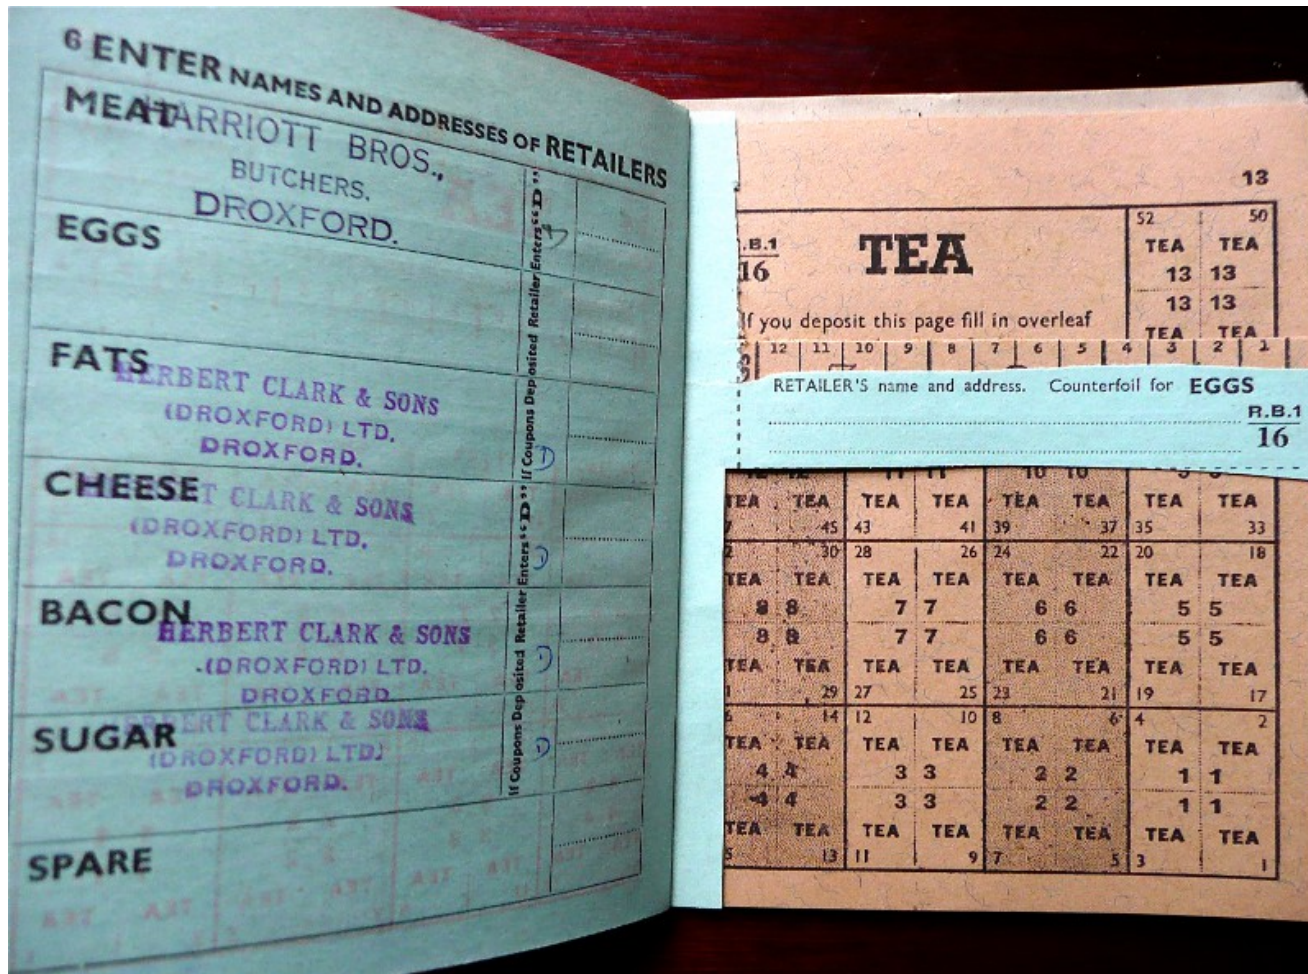 6 ENTER NAMES AND ADDRESSES OF RETAILERS
MEAT
HARRIOTT BROS.,
BUTCHERS.
DROXFORD.
EGGS
FATS
HERBERT CLARK & SONS
(DROXFORD) LTD.
DROXFORD.
CHEESE
T CLARK & SONS
(DROXFORD) LTD.
DROXFORD.
BACON
HERBERT CLARK & SONS
(DROXFORD) LTD.
DROXFORD.
SUGAR
HERBERT CLARK & SONS
(DROXFORD) LTD.
DROXFORD.
SPARE
If Coupons Deposited Retailer Enters "D"
If Coupons Deposited Retailer Enters "D"
D
D
D
D
13
.B.1
16
TEA
If you deposit this page fill in overleaf
52 50
TEA TEA
13 13
13 13
TEA TEA
12 11 10 9 8 7 6 5 4 3 2 1
RETAILER'S name and address. Counterfoil for EGGS
R.B.1
16
11 11 10 10
TEA TEA TEA TEA TEA TEA TEA TEA
45 43 41 39 37 35 33
30 28 26 24 22 20 18
TEA TEA TEA TEA TEA TEA TEA TEA
8 8 7 7 6 6 5 5
8 8 7 7 6 6 5 5
TEA TEA TEA TEA TEA TEA TEA TEA
29 27 25 23 21 19 17
14 12 10 8 6 4 2
TEA TEA TEA TEA TEA TEA TEA TEA
4 4 3 3 2 2 1 1
4 4 3 3 2 2 1 1
TEA TEA TEA TEA TEA TEA TEA TEA
13 11 9 7 5 3 1